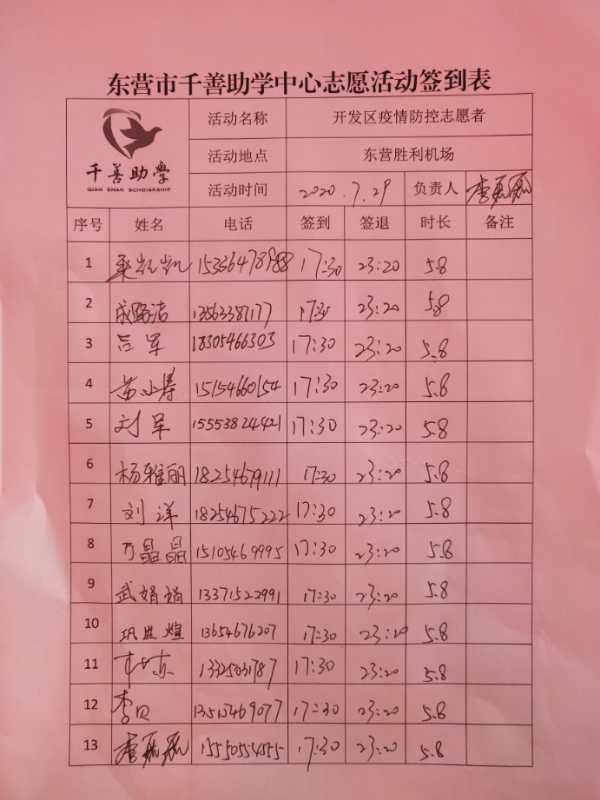 东营市千善助学中心志愿活动签到表
千善助學
QIAN SHAN SCHOLARSHIP
活动名称 开发区疫情防控志愿者
活动地点 东营胜利机场
活动时间 2020.7.29 负责人
序号 姓名 电话 签到 签退 时长 备注
1 15366478988 17:30 23:20 5.8
2 13563387177 17:30 23:20 5.8
3 吕军 18305466303 17:30 23:20 5.8
4 苗小寿 15154660154 17:30 23:20 5.8
5 刘军 15553824421 17:30 23:20 5.8
6 杨雅丽 18254679111 17:30 23:20 5.8
7 刘洋 18254675222 17:30 23:20 5.8
8 万晶晶 15105469995 17:30 23:20 5.8
9 武娟娟 13371522991 17:30 23:20 5.8
10 13654676207 17:30 23:20 5.8
11 13325031787 17:30 23:20 5.8
12 17:30 23:20 5.8
13 17:30 23:20 5.8